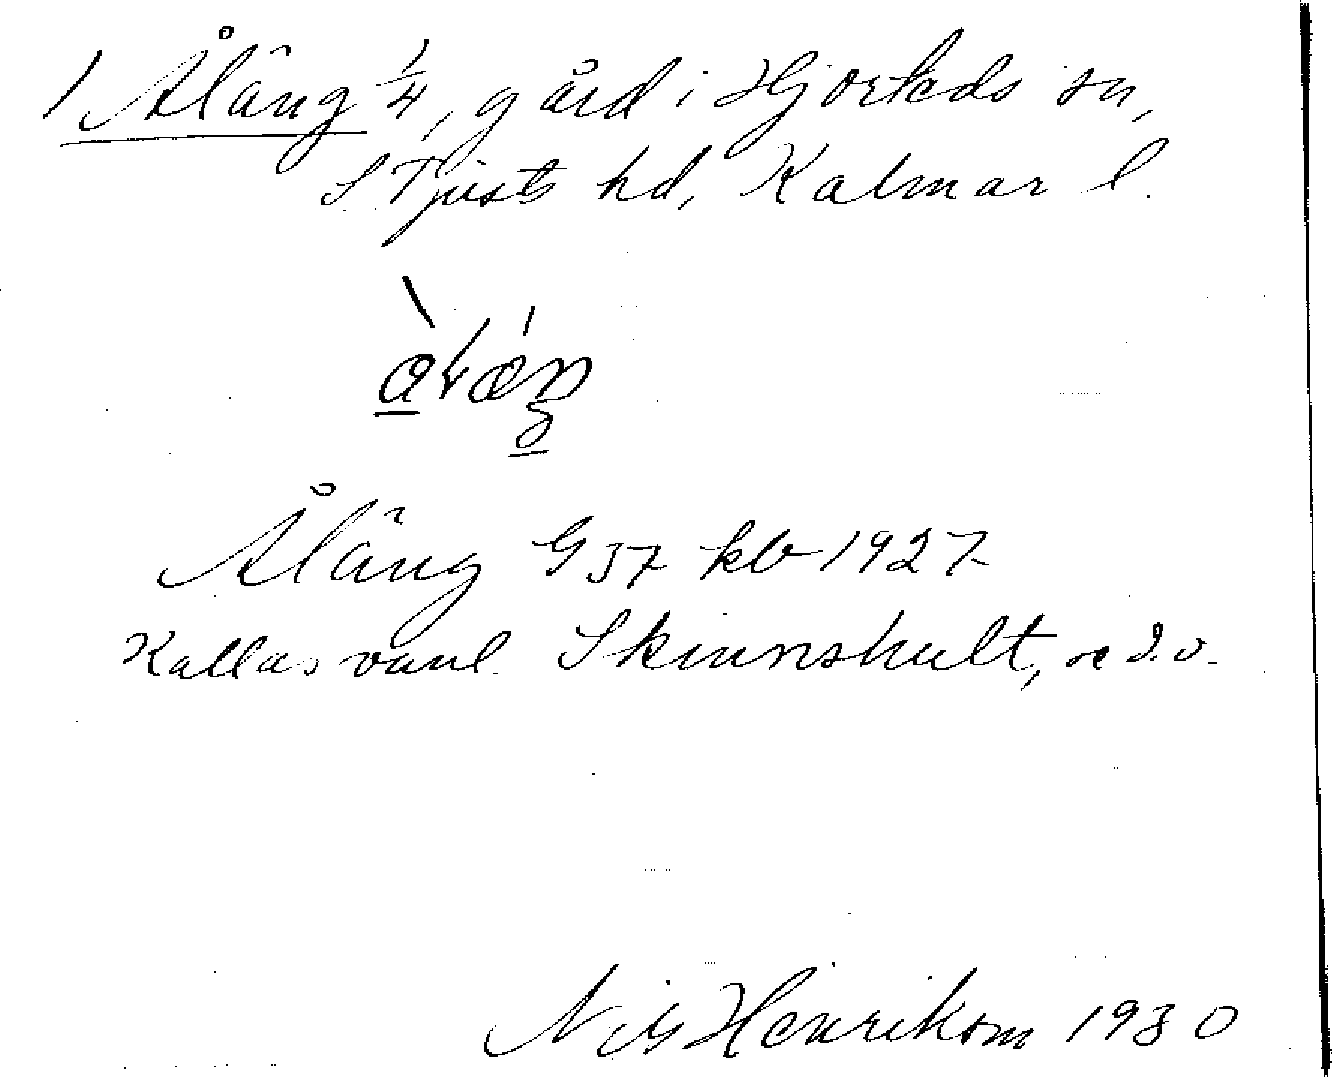 1 Åläng 1/4, gård i Hjorteds sn,
S Tjusts hd, Kalmar l.
Åläng G 37 kb 1927
Kallas vanl. Skinnshult, se d.o.
Nils Henrikson 1930